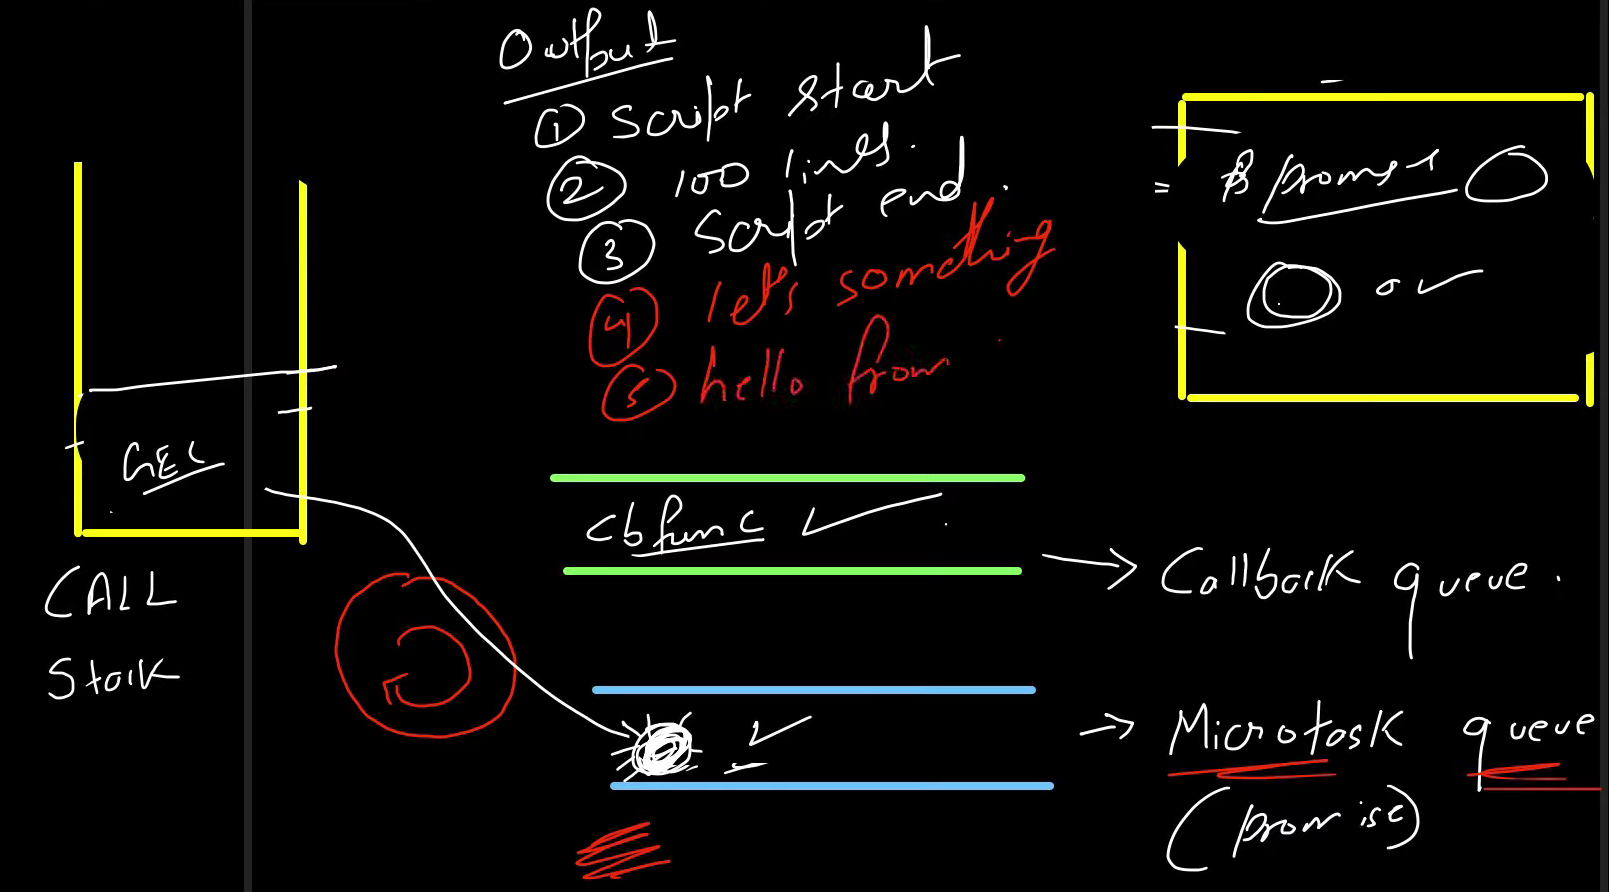 Output
① Script start
② 100 lines.
③ Script end.
④ let's something
⑤ hello from
promise
GEC
CALL
Stack
cbfunc
Callback queue.
Microtask queue
(promise)